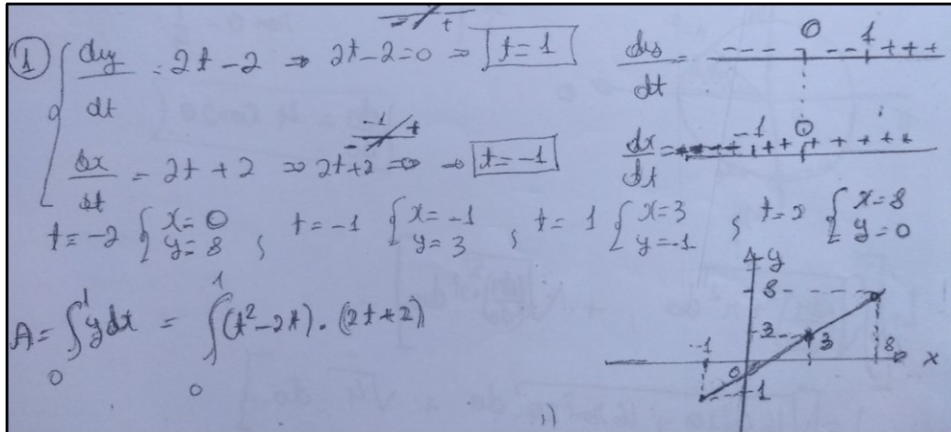 ① { dy/dt = 2t - 2 ⇒ 2t - 2 = 0 ⇒ t = 1
- / +
dy/dt = - - - - 0 - - 1 + + +
dx/dt = 2t + 2 ⇒ 2t + 2 = 0 → t = -1
-1 - / +
dx/dt = -1 + + 0 + + + + + +
t = -2 { x = 0 y = 8 ; t = -1 { x = -1 y = 3 ; t = 1 { x = 3 y = -1 ; t = 2 { x = 8 y = 0
A = ∫₀¹ y dx = ∫₀¹ (t² - 2t) · (2t + 2)
y
8
3
-1 0 3 8 x
-1